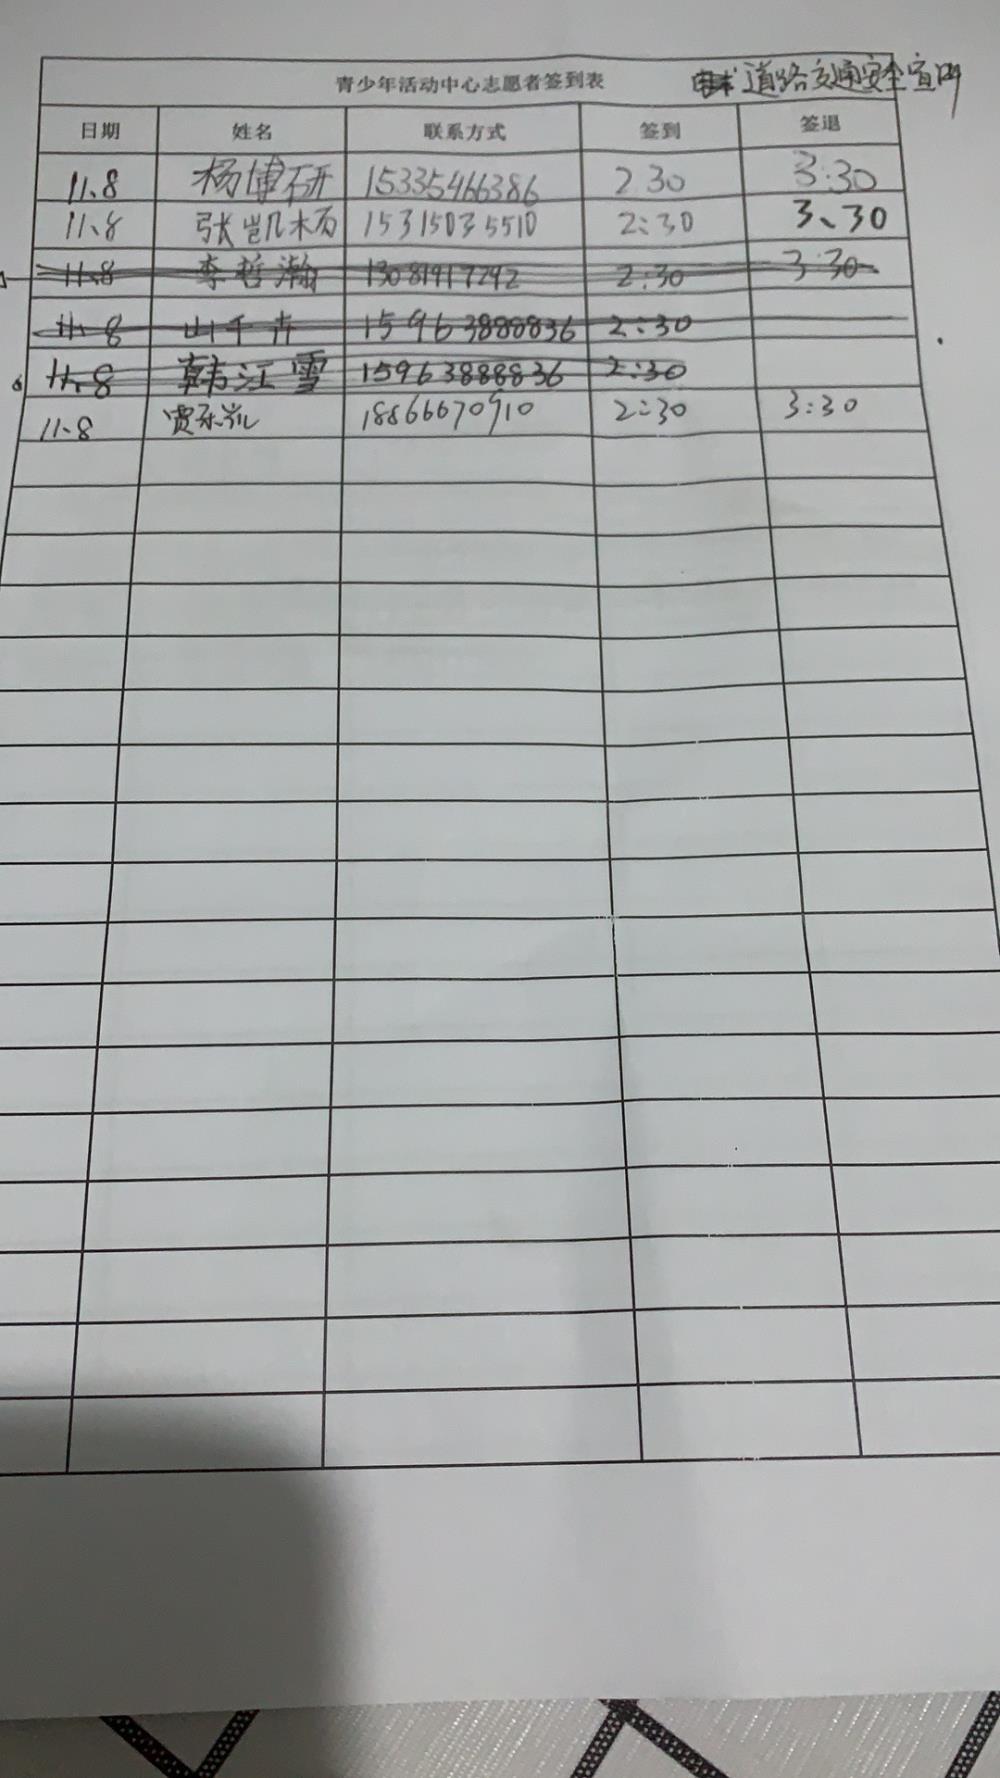 青少年活动中心志愿者签到表 道路交通安全宣
日期 姓名 联系方式 签到 签退
11、8 杨博研 15335466386 2:30 3:30
11、8 张凯 15315035510 2:30 3、30
11.8 李哲瀚 13081917292 2:30 3:30
11.8 山千卉 15963888836 2:30
11.8 韩江雪 15963888836 2:30
11、8 贾 18866670910 2:30 3:30